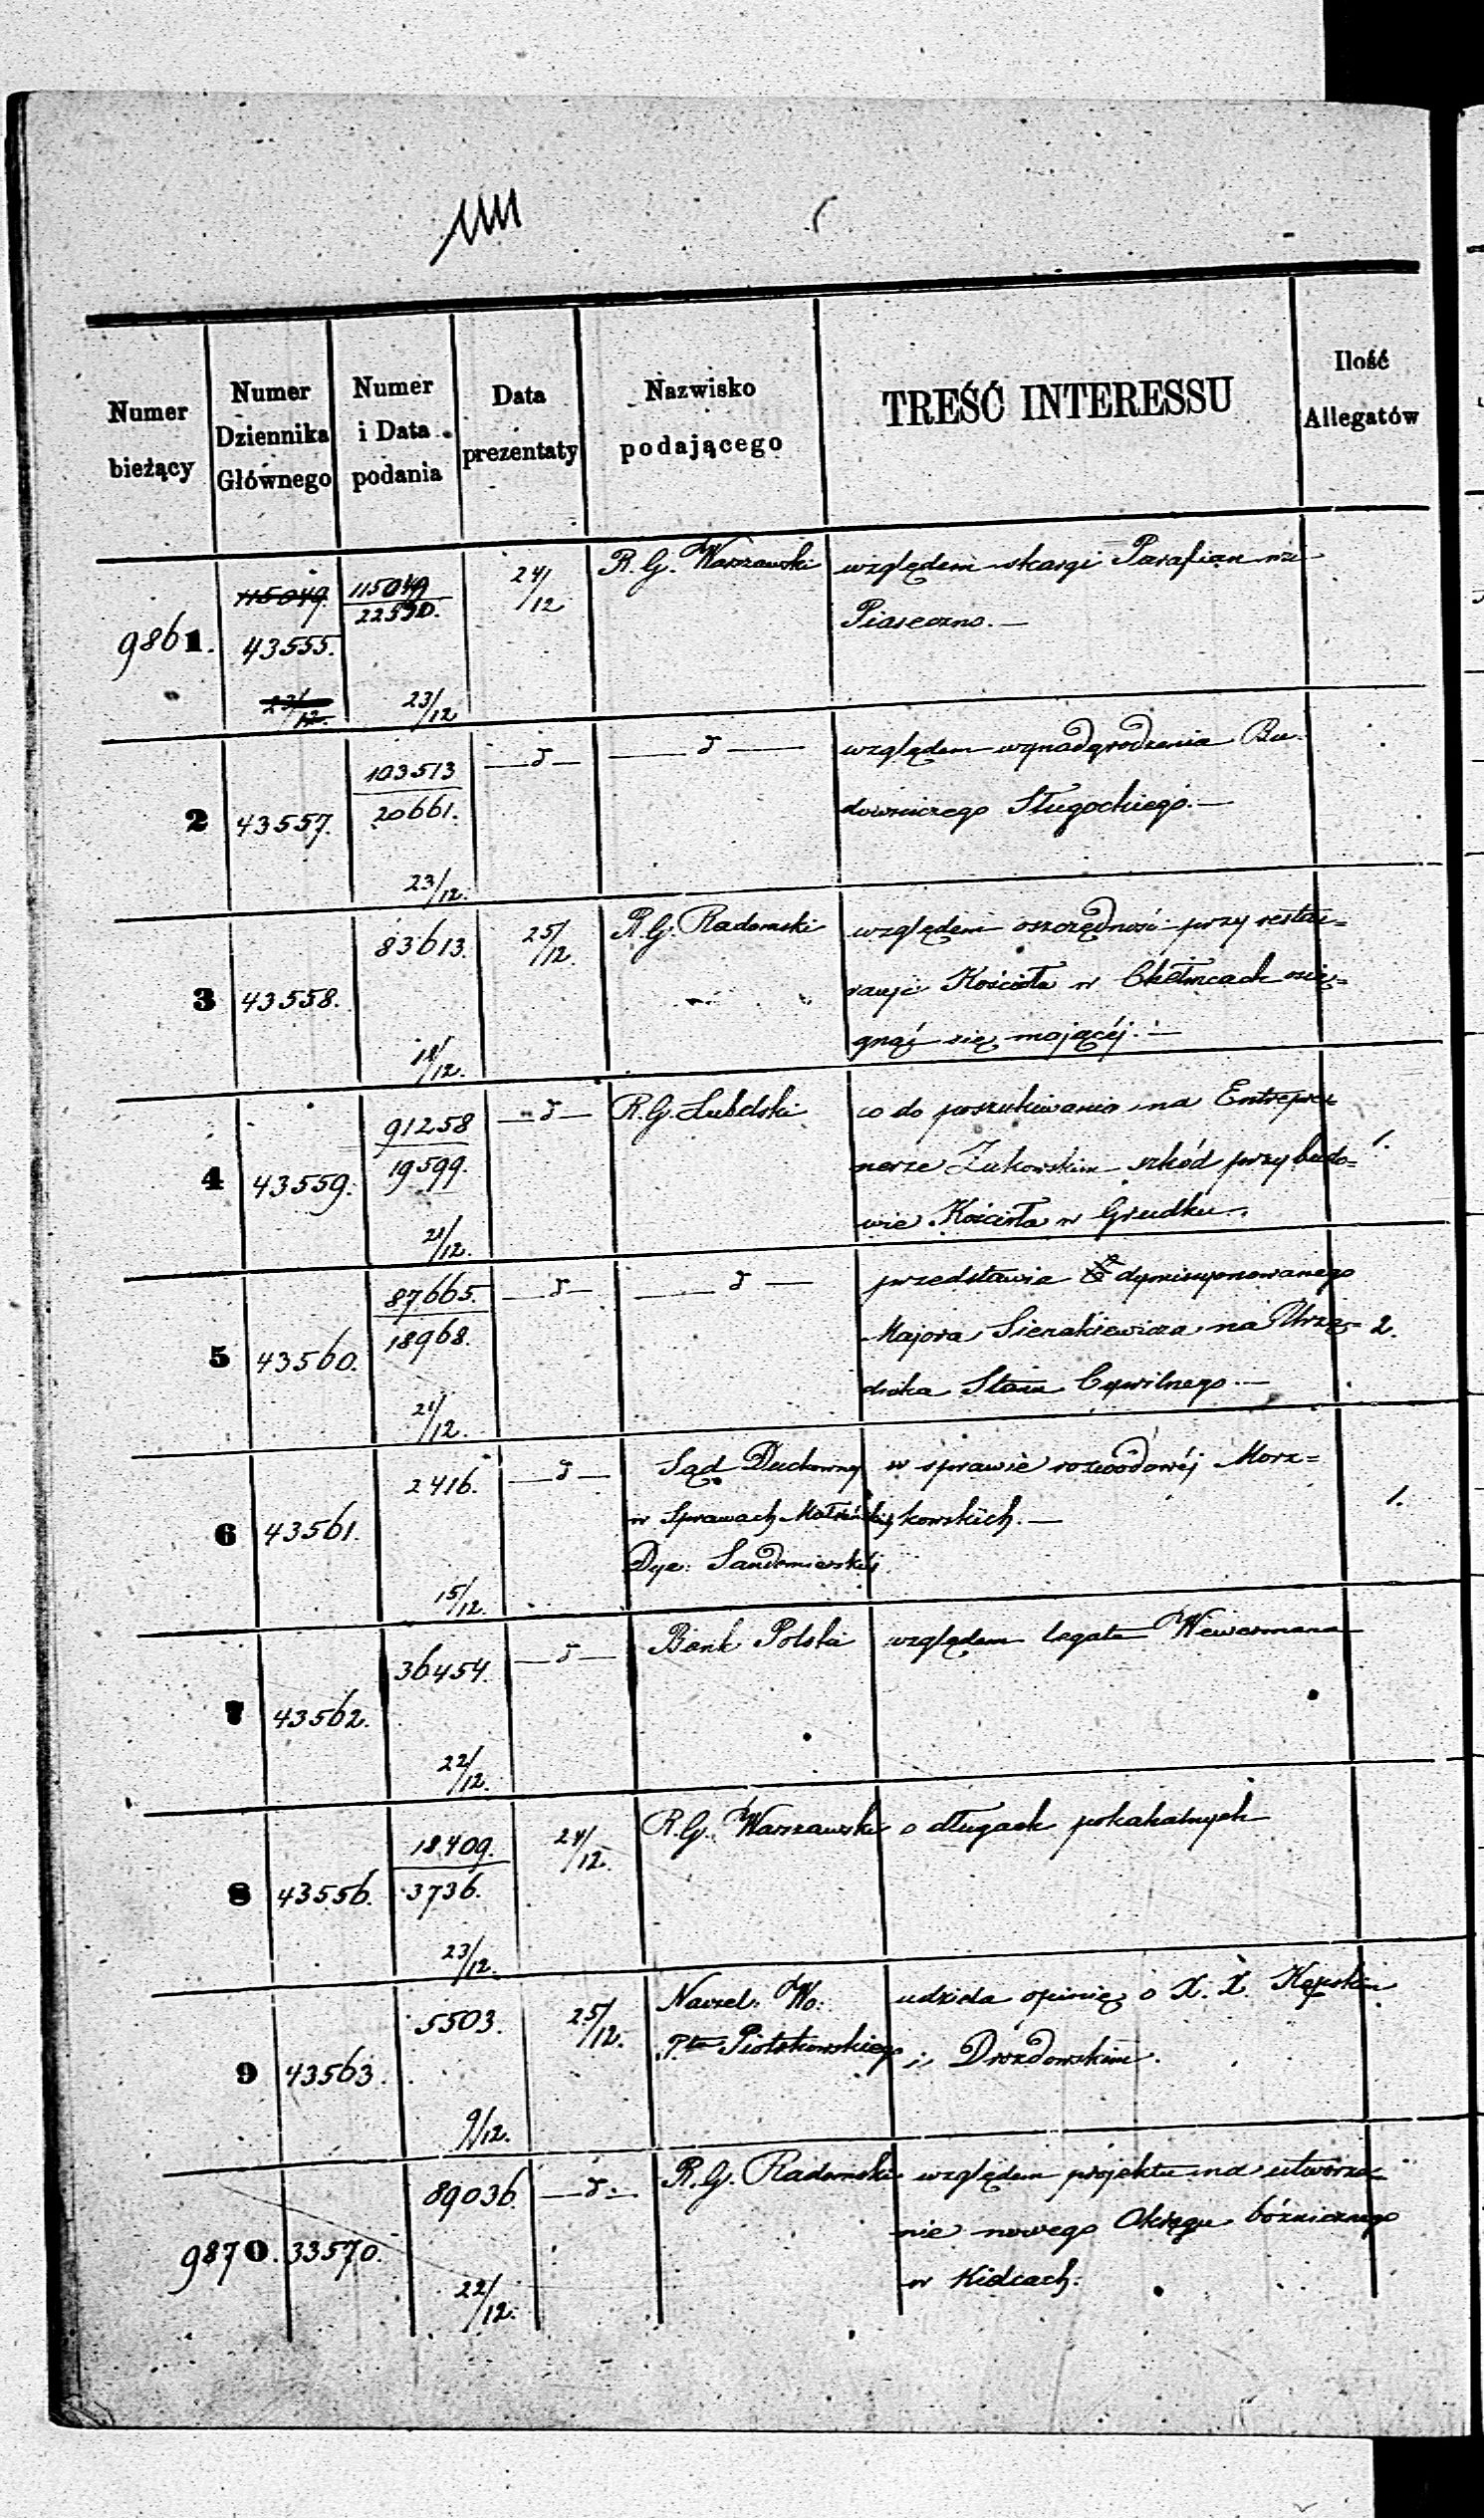 Numer bieżący
Numer Dziennika Głównego
Numer i Data podania
Data prezentaty
Nazwisko podającego
TREŚĆ INTERESSU
Ilość Allegatów
9861.
115049.
43555.
23/12.
115049
22590.
23/12
24/12
R. G. Warszawski
względem skargi Parafian
Piaseczno. —
2
43557.
103513
20661.
23/12.
— d —
— d —
względem wynadgrodzenia Bu-
downiczego Sługockiego. —
3
43558.
83613.
18/12.
25/12.
R. G. Radomski
względem oszczędności przy restau=
racyi Kościoła w Chełmcach osię=
gnąć się mającéj. —
4
43559.
91258
19599.
21/12.
— d —
R. G. Lubelski
co do poszukiwania na Entrepre-
nerze Żukowskim szkód przy budo=
wie Kościoła w Gródku.
1.
5
43560.
87665.
18968.
21/12.
— d —
— d —
przedstawia dymisyonowanego
Majora Sierakiewicza na Urzę=
dnika Stanu Cywilnego. —
2.
6
43561.
2416.
15/12.
— d —
Sąd Duchowny
w Sprawach Małżeńskich
Dye: Sandomierskiéj
w sprawie rozwodowéj Morz=
kowskich. —
1.
7
43562.
36454.
22/12.
— d —
Bank Polski
względem legatu Wewermana
8
43556.
18409.
3736.
23/12.
24/12.
R. G. Warszawski
o długach pokahalnych
9
43563.
5503.
9/12.
25/12.
Naczel: Wo:
Ptu Piotrkowskiego
udziela opinię o X. X. Kępskim
i Drozdowskim.
9870.
33570.
89036.
22/12.
— d —
R. G. Radomski
względem projektu na utworze-
nie nowego Okręgu bóżnicznego
w Kielcach.